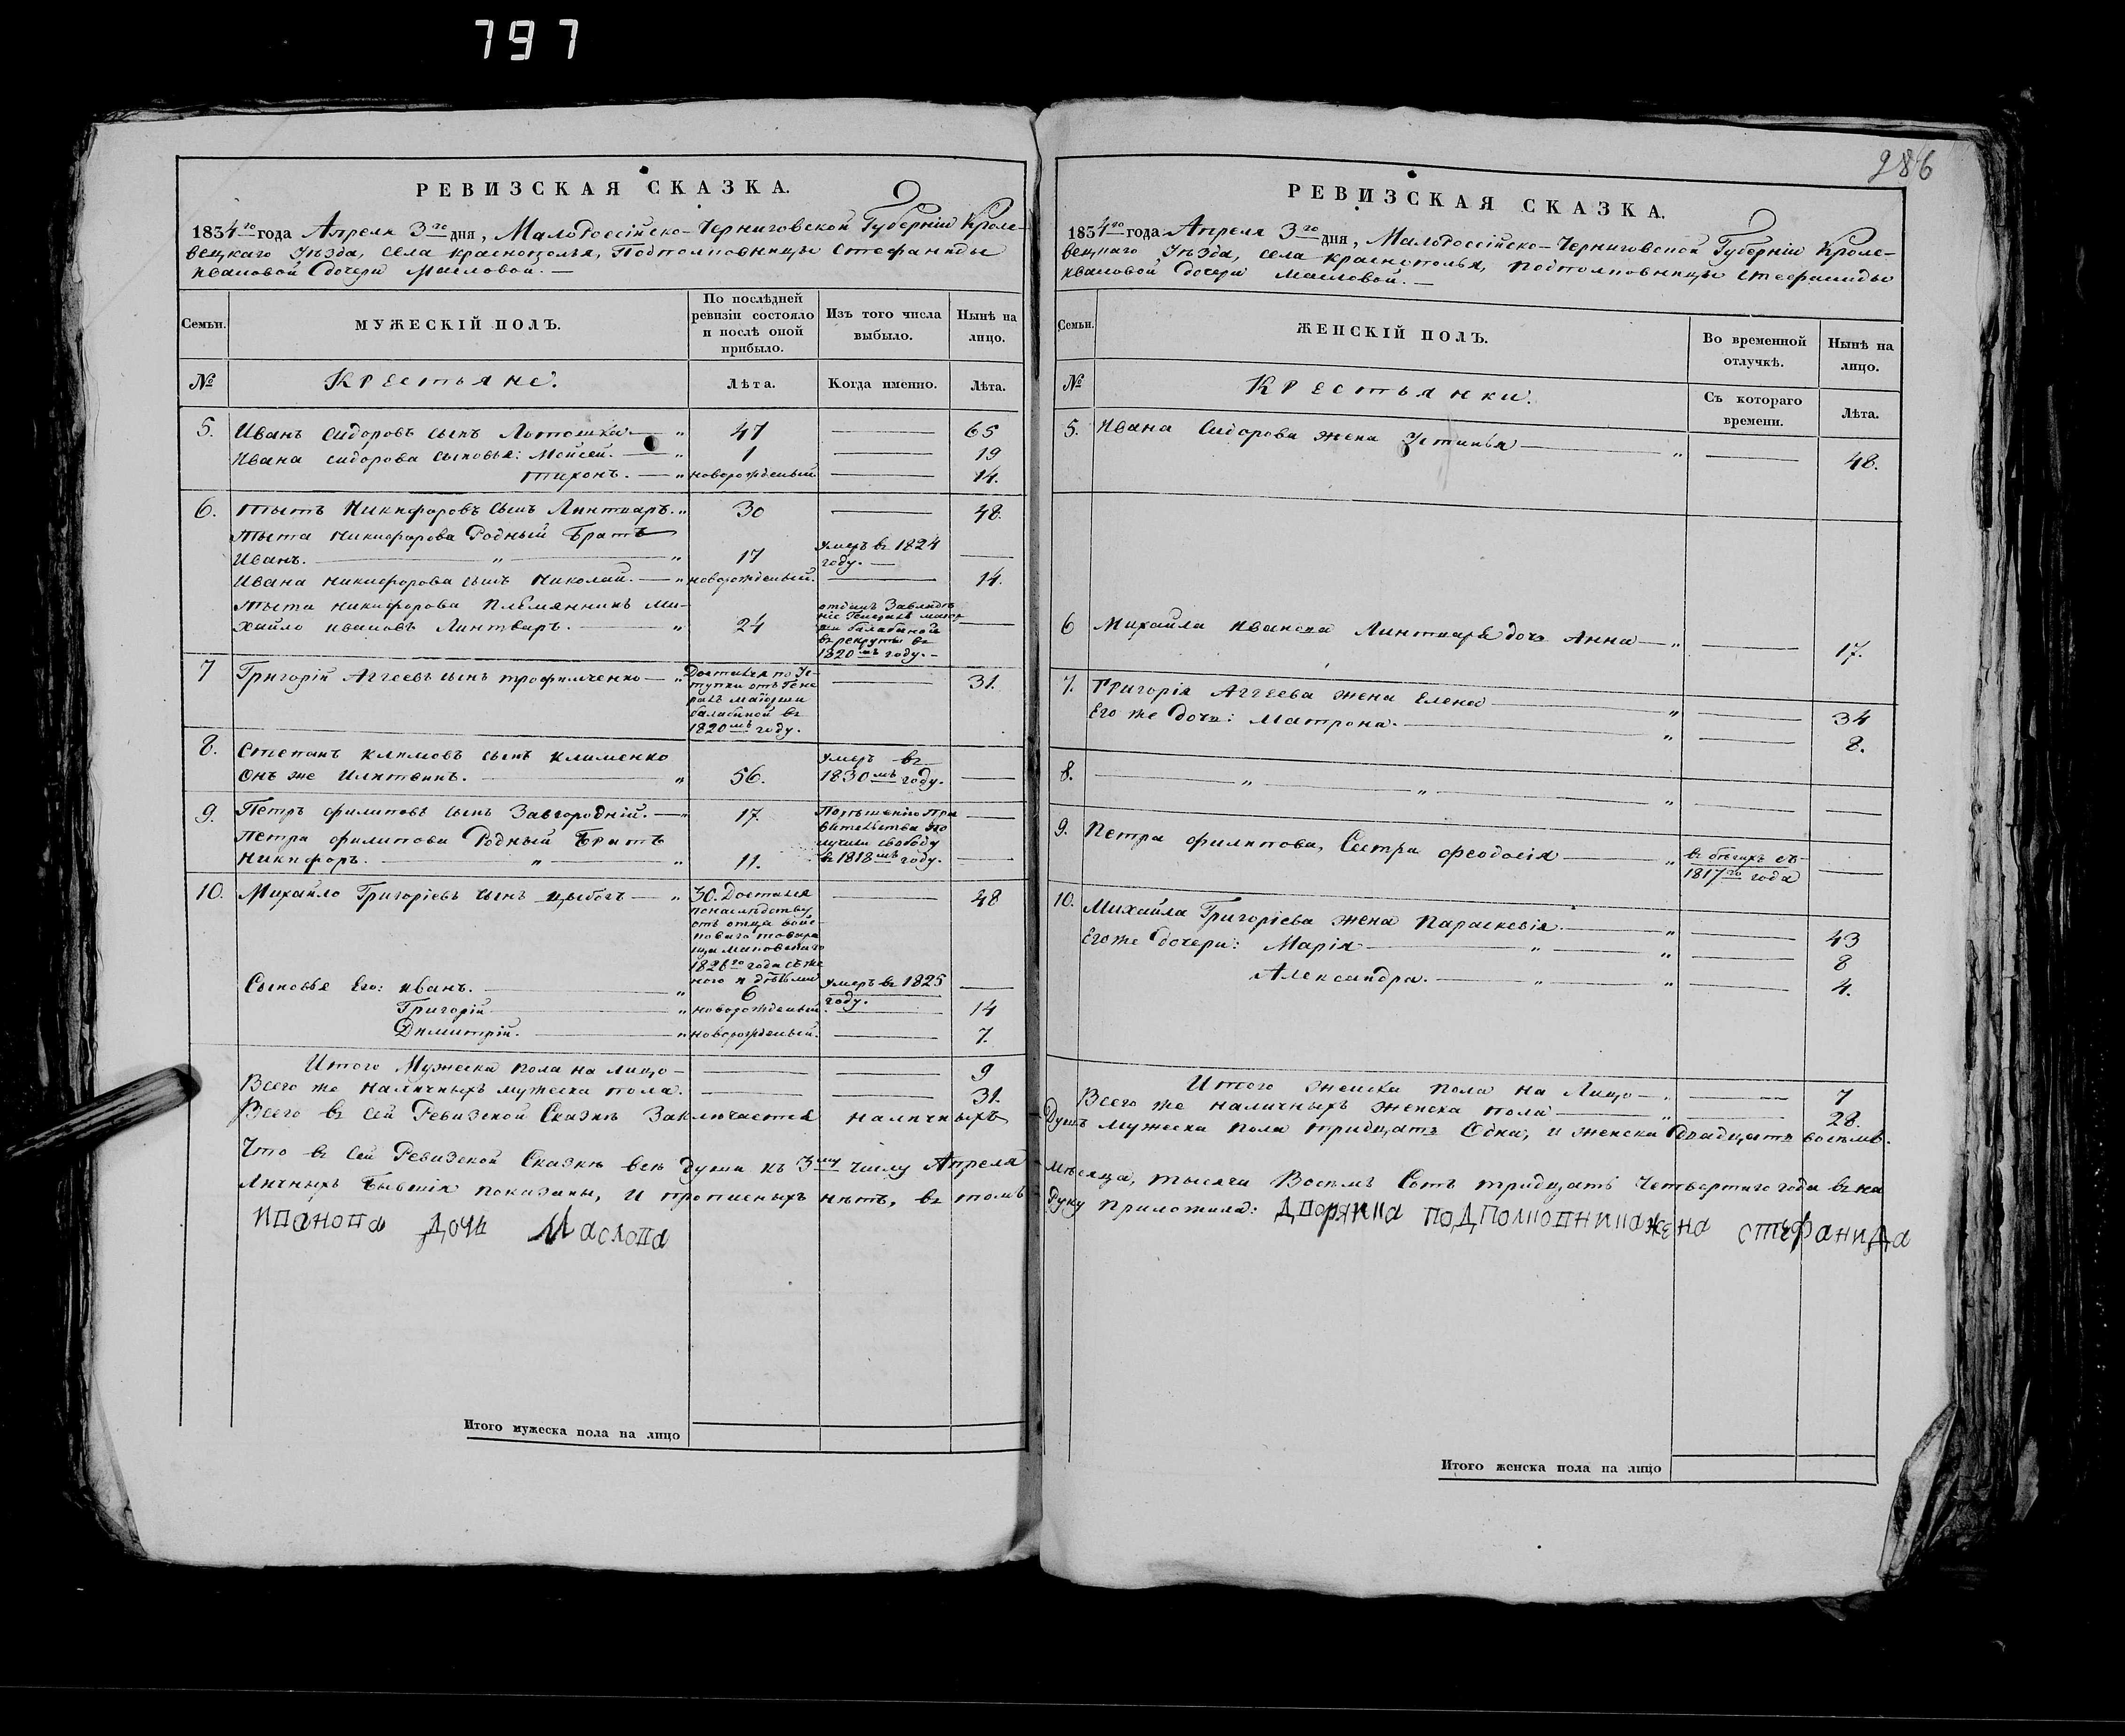 797
286
РЕВИЗСКАЯ СКАЗКА.
1834го года Апреля 3го дня, Малороссійско-Черниговской Губерніи Кроле-
вецкаго Уѣзда, села Краснополья, Подполковницы Стефаниды
Ивановой дочери Масловой.
Семьи.
МУЖЕСКІЙ ПОЛЪ.
По послѣдней ревизіи состояло и послѣ оной прибыло.
Изъ того числа выбыло.
Нынѣ на лицо.
№
Крестьяне.
Лѣта.
Когда именно.
Лѣта.
5. Иванъ Сидоровъ сынъ 47 65
Ивана Сидорова сыновья: Моисей. 1 19
Тихонъ. новорожденый 14.
6. Титъ Никифоровъ сынъ Линтваръ. 30 48.
Тита Никифорова Родный Братъ
Иванъ. 17 умеръ въ 1824 году.
Ивана Никифорова сынъ Николай. новорожденый. 14.
Тита Никифорова племянникъ Ми-
хайло Ивановъ Линтваръ. 24 въ рекруты въ 1820мъ году.
7 Григорій Аггеевъ сынъ Трофимченко Достался по Ус-
тупки отъ Гене
ралъ маіорши
Балабиной въ
1820мъ году. 31.
8. Степанъ Климовъ сынъ Клименко
Онъ же 56. умеръ въ 1830мъ году.
9. Петръ Филиповъ сынъ Завгородній. 17.
Петра Филипова Родный Братъ
Никифоръ. 11. свободу въ 1818мъ году.
10. Михайло Григоріевъ сынъ 30. Достался
по наслѣдству
отъ отца
1826го года съ же
ною и дѣтьми 48
Сыновья Его: Иванъ. 6 умеръ въ 1825 году.
Григорій новорожденый. 14
Димитрій. новорожденый. 7.
Итого Мужеска пола на лицо 9
Всего же наличныхъ мужеска пола. 31.
Всего въ сей Ревизской Сказкѣ Заключается наличныхъ
Что въ сей Ревизской Сказкѣ всѣ души къ 3му числу Апреля
личныхъ бывшія показаны, и прописныхъ нѣтъ, въ томъ
Ипанопа дочи Маслопа
Итого мужеска пола на лицо
РЕВИЗСКАЯ СКАЗКА.
1834го года Апреля 3го дня, Малороссійско-Черниговской Губерніи Кроле-
вецкаго Уѣзда, села Краснополья, Подполковницы Стефаниды
Ивановой дочери Масловой.
Семьи.
ЖЕНСКІЙ ПОЛЪ.
Во временной отлучкѣ.
Нынѣ на лицо.
№
Крестьянки.
Съ котораго времени.
Лѣта.
5. Ивана Сидорова жена Устинья 48.
6 Михайла Иванова Линтваря дочь Анна 17.
7. Григорія Аггеева жена Елена 34
Его же дочь: Матрона. 8.
8.
9. Петра Филипова, Сестра Феодосія въ бѣгахъ съ 1817го года
10. Михайла Григоріева жена Параскевія 43
Его же дочери: Марія 8
Александра. 4.
Итого женска пола на Лицо 7
Всего же наличныхъ женска пола 28.
Душъ мужеска пола тридцать Одна, и женска двадцать восемь.
мѣсяца, тысяча Восемь Сотъ тридцать Четвертаго года въ на
Руку Приложила: Дпорянка подполкопница жена стефанида
Итого женска пола на лицо